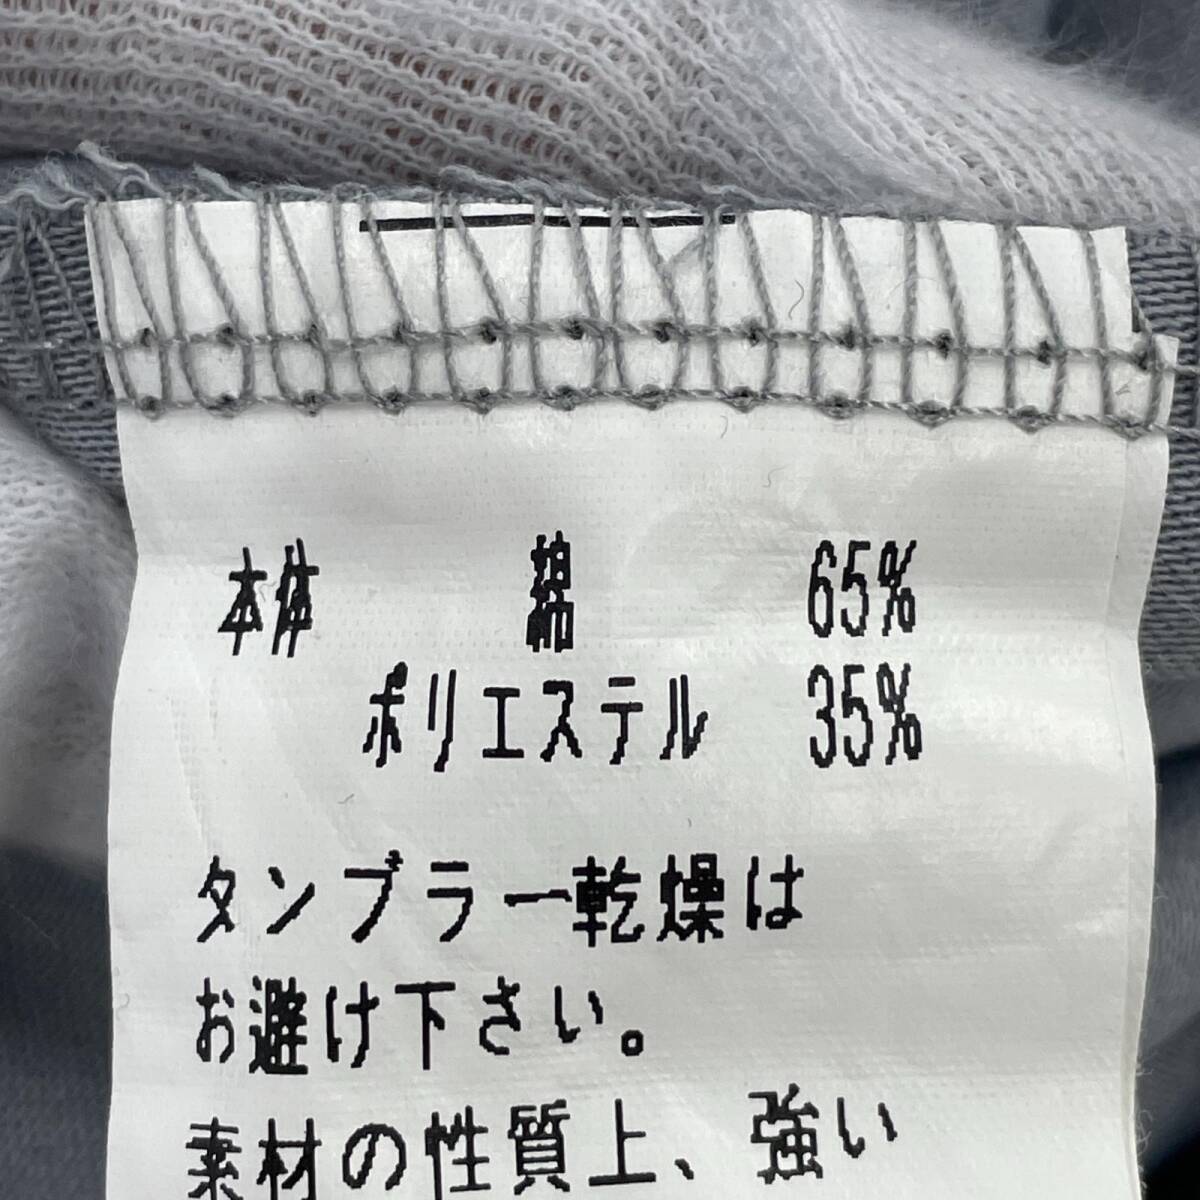 本体 綿 65%
ポリエステル 35%
タンブラー乾燥は
お避け下さい。
素材の性質上、強い